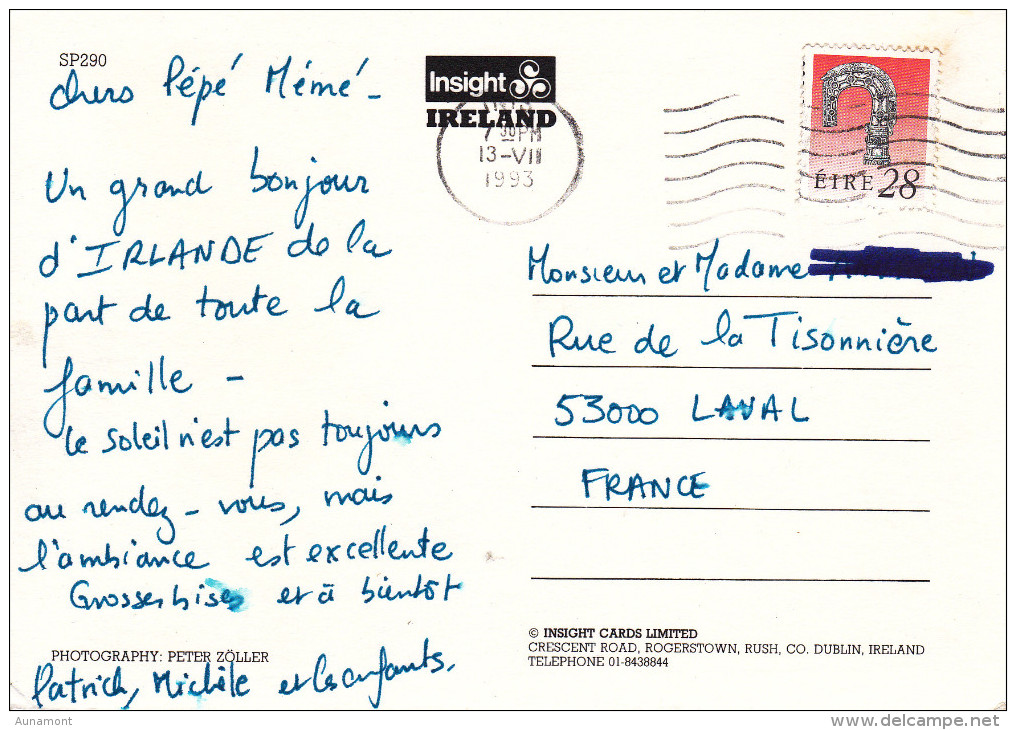 SP290
chers Pépé Mémé -
Un grand bonjour
d'IRLANDE de la
part de toute la
famille -
Le soleil n'est pas toujours
au rendez-vous, mais
l'ambiance est excellente
Grosses bises et à bientôt
PHOTOGRAPHY: PETER ZÖLLER
Patrick, Michèle et les enfants.
Insight
IRELAND
7 00 PM
13-VII
1993
ÉIRE 28
Monsieur et Madame
Rue de la Tisonnière
53000 LAVAL
FRANCE
© INSIGHT CARDS LIMITED
CRESCENT ROAD, ROGERSTOWN, RUSH, CO. DUBLIN, IRELAND
TELEPHONE 01-8438844
Aunamont
delcampe.net